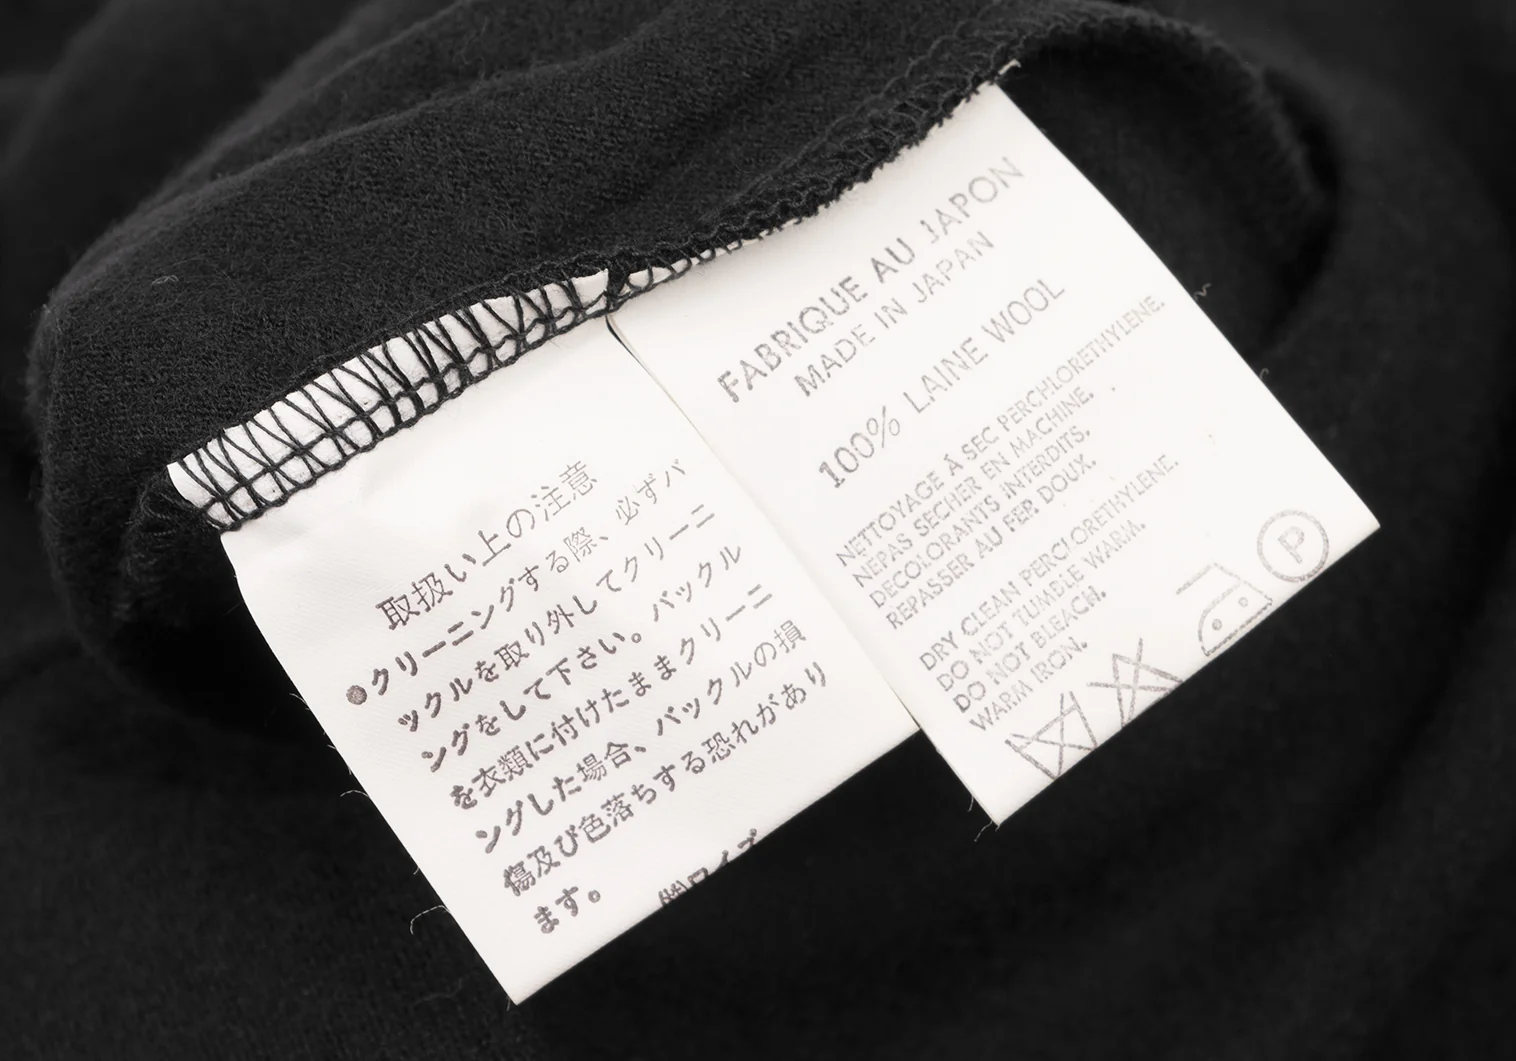 取扱い上の注意
●クリーニングする際、必ずバ
ックルを取り外してクリーニ
ングをして下さい。バックル
を衣類に付けたままクリーニ
ングした場合、バックルの損
傷及び色落ちする恐れがあり
ます。
㈱ワイズ
FABRIQUE AU JAPON
MADE IN JAPAN
100% LAINE WOOL
NETTOYAGE À SEC PERCHLORETHYLENE.
NEPAS SECHER EN MACHINE.
DECOLORANTS INTERDITS.
REPASSER AU FER DOUX.
DRY CLEAN PERCLORETHYLENE.
DO NOT TUMBLE WARM.
DO NOT BLEACH.
WARM IRON.
P